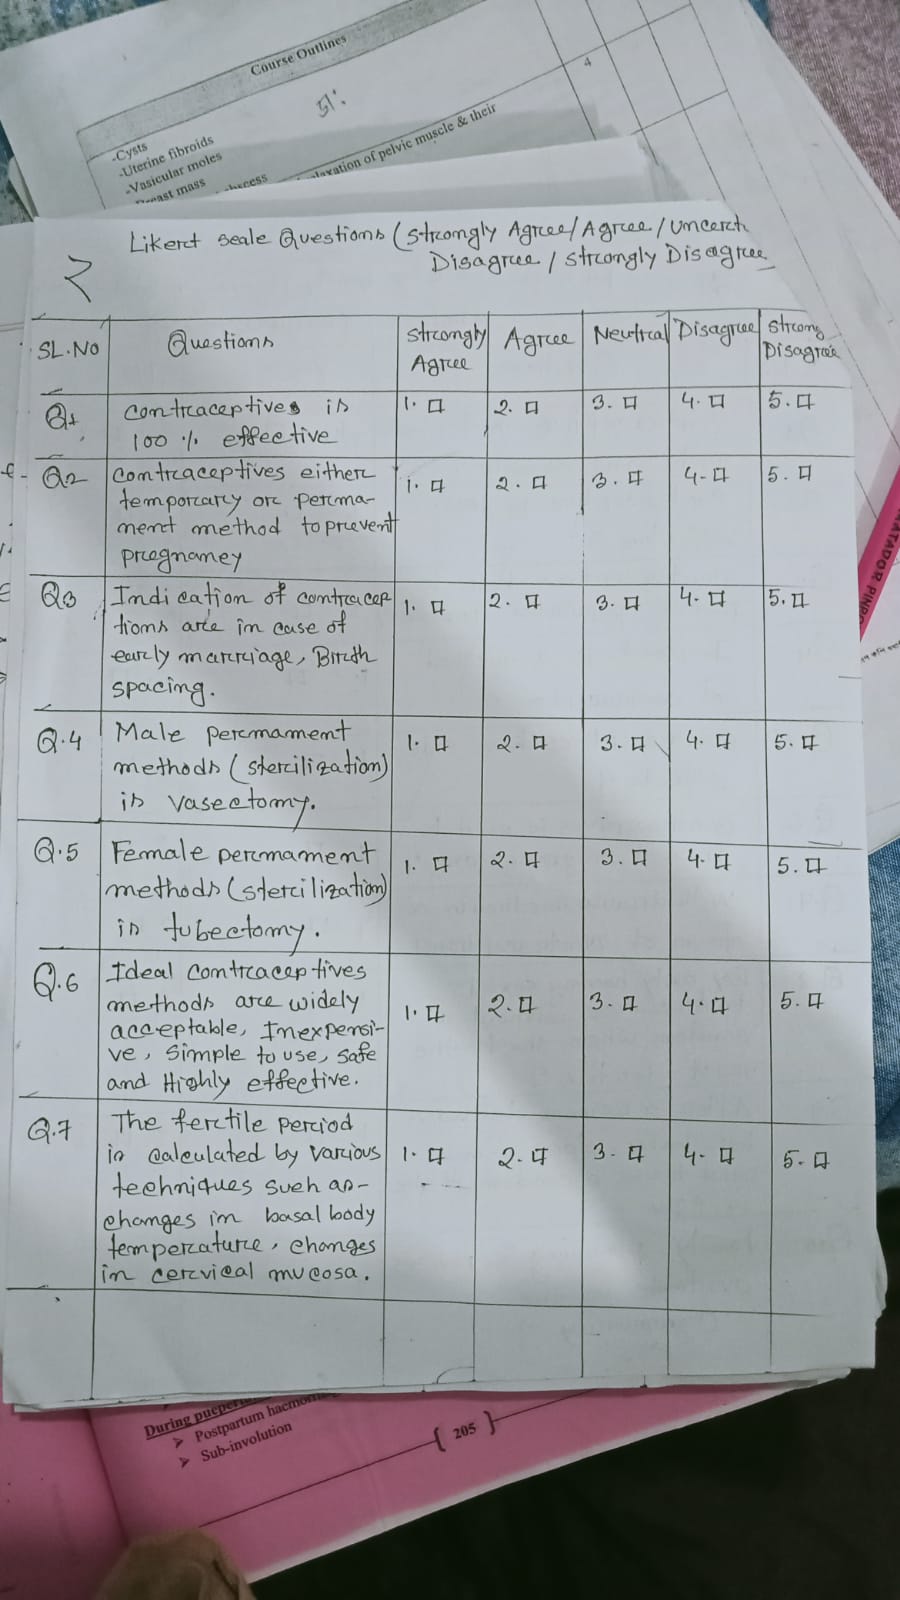 Course Outlines
4
-Cysts
-Uterine fibroids
-Vasicular moles
mass
laxation of pelvic muscle & their
Likert scale Questions (Strongly Agree/Agree/Uncert
Disagree / Strongly Disagree
২
SL.NO Questions Strongly Agree Agree Neutral Disagree Strong Disagree
Q1 Contraceptives is 1. □ 2. □ 3. □ 4. □ 5. □
100 % effective
Q2 Contraceptives either 1. □ 2. □ 3. □ 4. □ 5. □
temporary or perma-
nent method to prevent
pregnancy
Q3 Indication of contracep 1. □ 2. □ 3. □ 4. □ 5. □
tions are in case of
early marriage, Birth
spacing.
Q.4 Male permament 1. □ 2. □ 3. □ 4. □ 5. □
methods (sterilization)
is vasectomy.
Q.5 Female permament 1. □ 2. □ 3. □ 4. □ 5. □
methods (sterilization)
is tubectomy.
Q.6 Ideal contraceptives 1. □ 2. □ 3. □ 4. □ 5. □
methods are widely
acceptable, Inexpensi-
ve, Simple to use, safe
and Highly effective.
Q.7 The fertile period 1. □ 2. □ 3. □ 4. □ 5. □
is calculated by various
techniques such as-
changes in basal body
temperature, changes
in cervical mucosa.
MATADOR PINPO
During
➤ Postpartum
➤ Sub-involution
{ 205 }